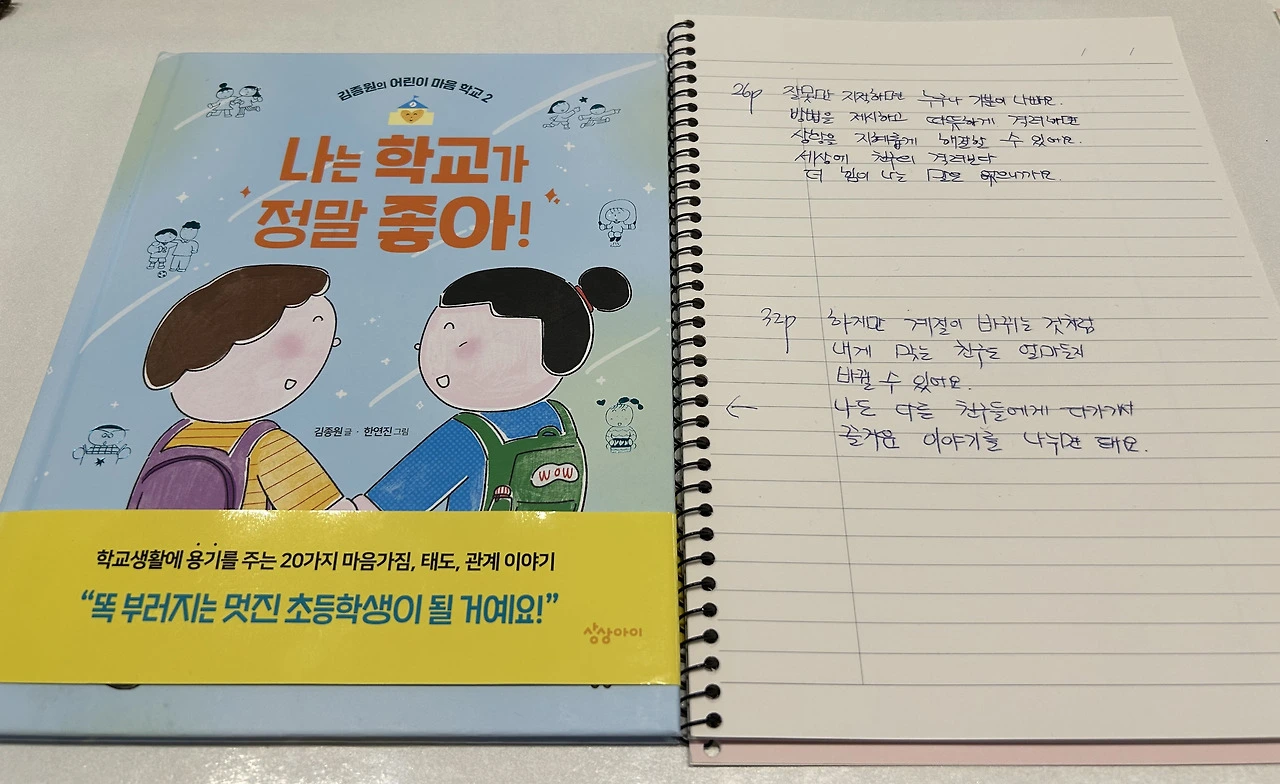 김종원의 어린이 마음 학교 2
나는 학교가
정말 좋아!
김종원 글 · 한연진 그림
WOW
학교생활에 용기를 주는 20가지 마음가짐, 태도, 관계 이야기
“똑 부러지는 멋진 초등학생이 될 거예요!”
상상아이
/ /
26p 잘못만 지적하면 누구나 기분이 나빠요.
방법을 제시하고 따뜻하게 격려하면
상황을 지혜롭게 해결할 수 있어요.
세상에 친구의 격려보다
더 힘이 나는 말은 없으니까요.
32p 하지만 계절이 바뀌는 것처럼
내게 맞는 친구는 얼마든지
바뀔 수 있어요.
← 나도 다른 친구들에게 다가가서
즐거운 이야기를 나누면 돼요.